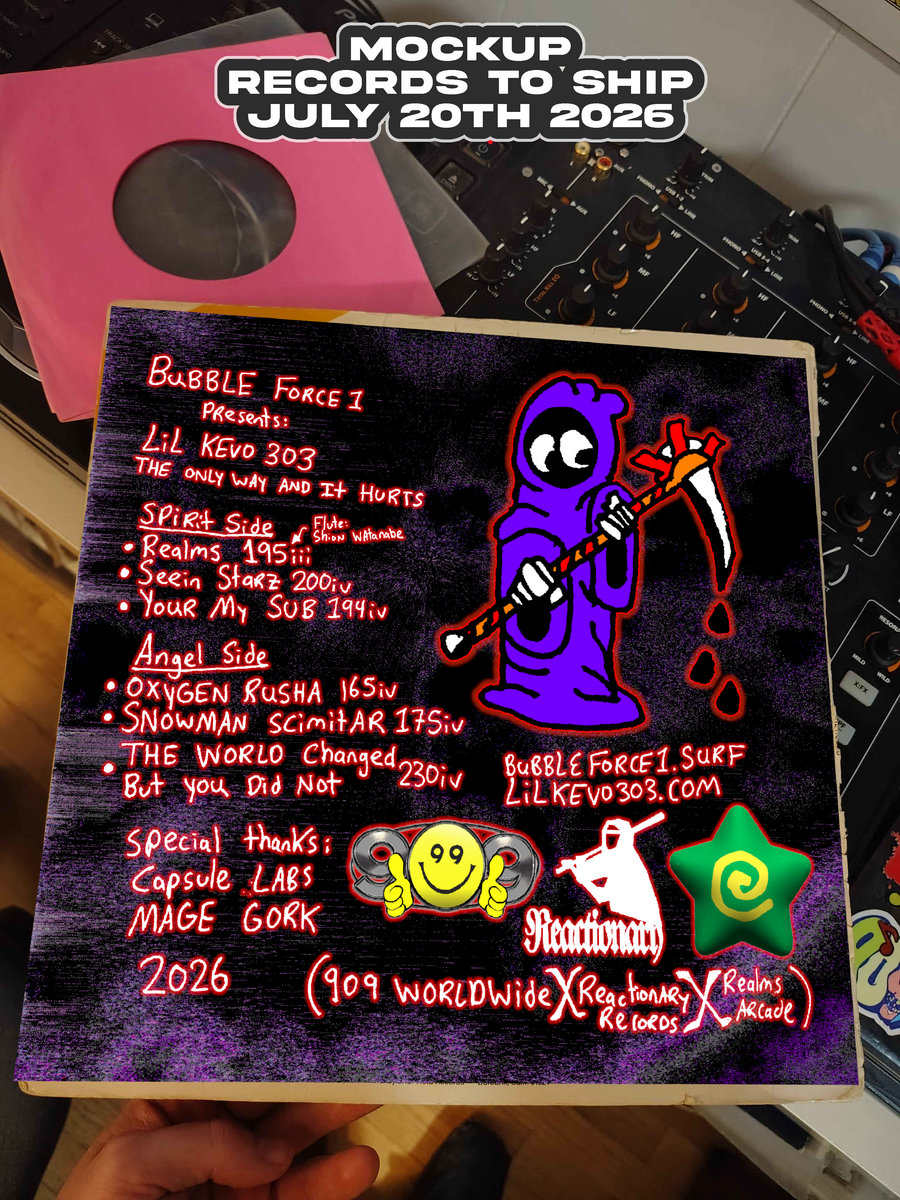 MOCKUP
RECORDS TO SHIP
JULY 20TH 2026
BuBBLE FORCE 1
Presents:
LiL KEVO 303
THE ONLY WAY AND It HURTS
SPiRit Side
Flute:
Shion WAtanabe
• Realms 195iii
• Seein StaRz 200iv
• YOUR My SUB 194iv
Angel Side
• OXYGEN RUSHA 165iv
• SNOWMAN SCimitAR 175iv
• THE WORLD Changed
But you Did Not 230iv
BuBBLEFORCE1.SURF
LiLKEVO303.COM
special thanks:
Capsule LABs
MAGE GORK
2026
99
Reactionary
(909 WORLDWide X ReactionARy RecoRDS X Realms ARcade)